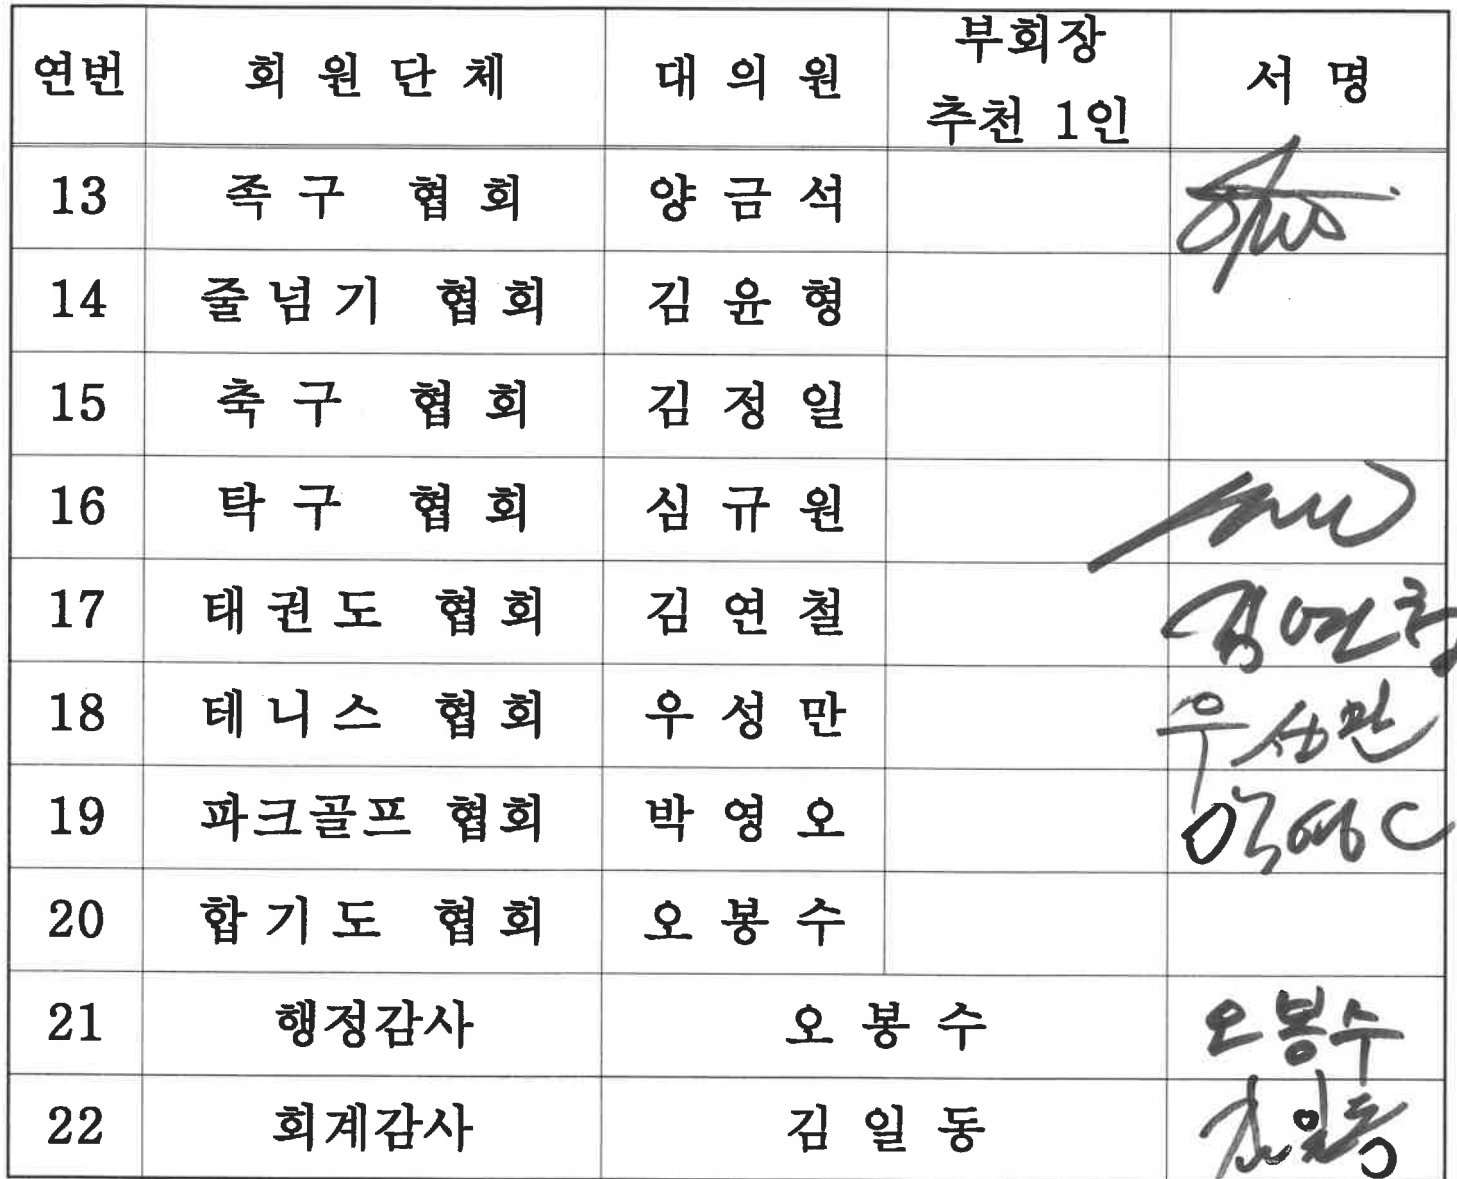 연번 회 원 단 체 대 의 원 부회장 추천 1인 서 명
13 족 구 협 회 양 금 석
14 줄 넘 기 협 회 김 윤 형
15 축 구 협 회 김 정 일
16 탁 구 협 회 심 규 원
17 태 권 도 협 회 김 연 철 김연철
18 테 니 스 협 회 우 성 만 우성만
19 파크골프 협회 박 영 오
20 합 기 도 협 회 오 봉 수
21 행정감사 오 봉 수 오봉수
22 회계감사 김 일 동 김일동